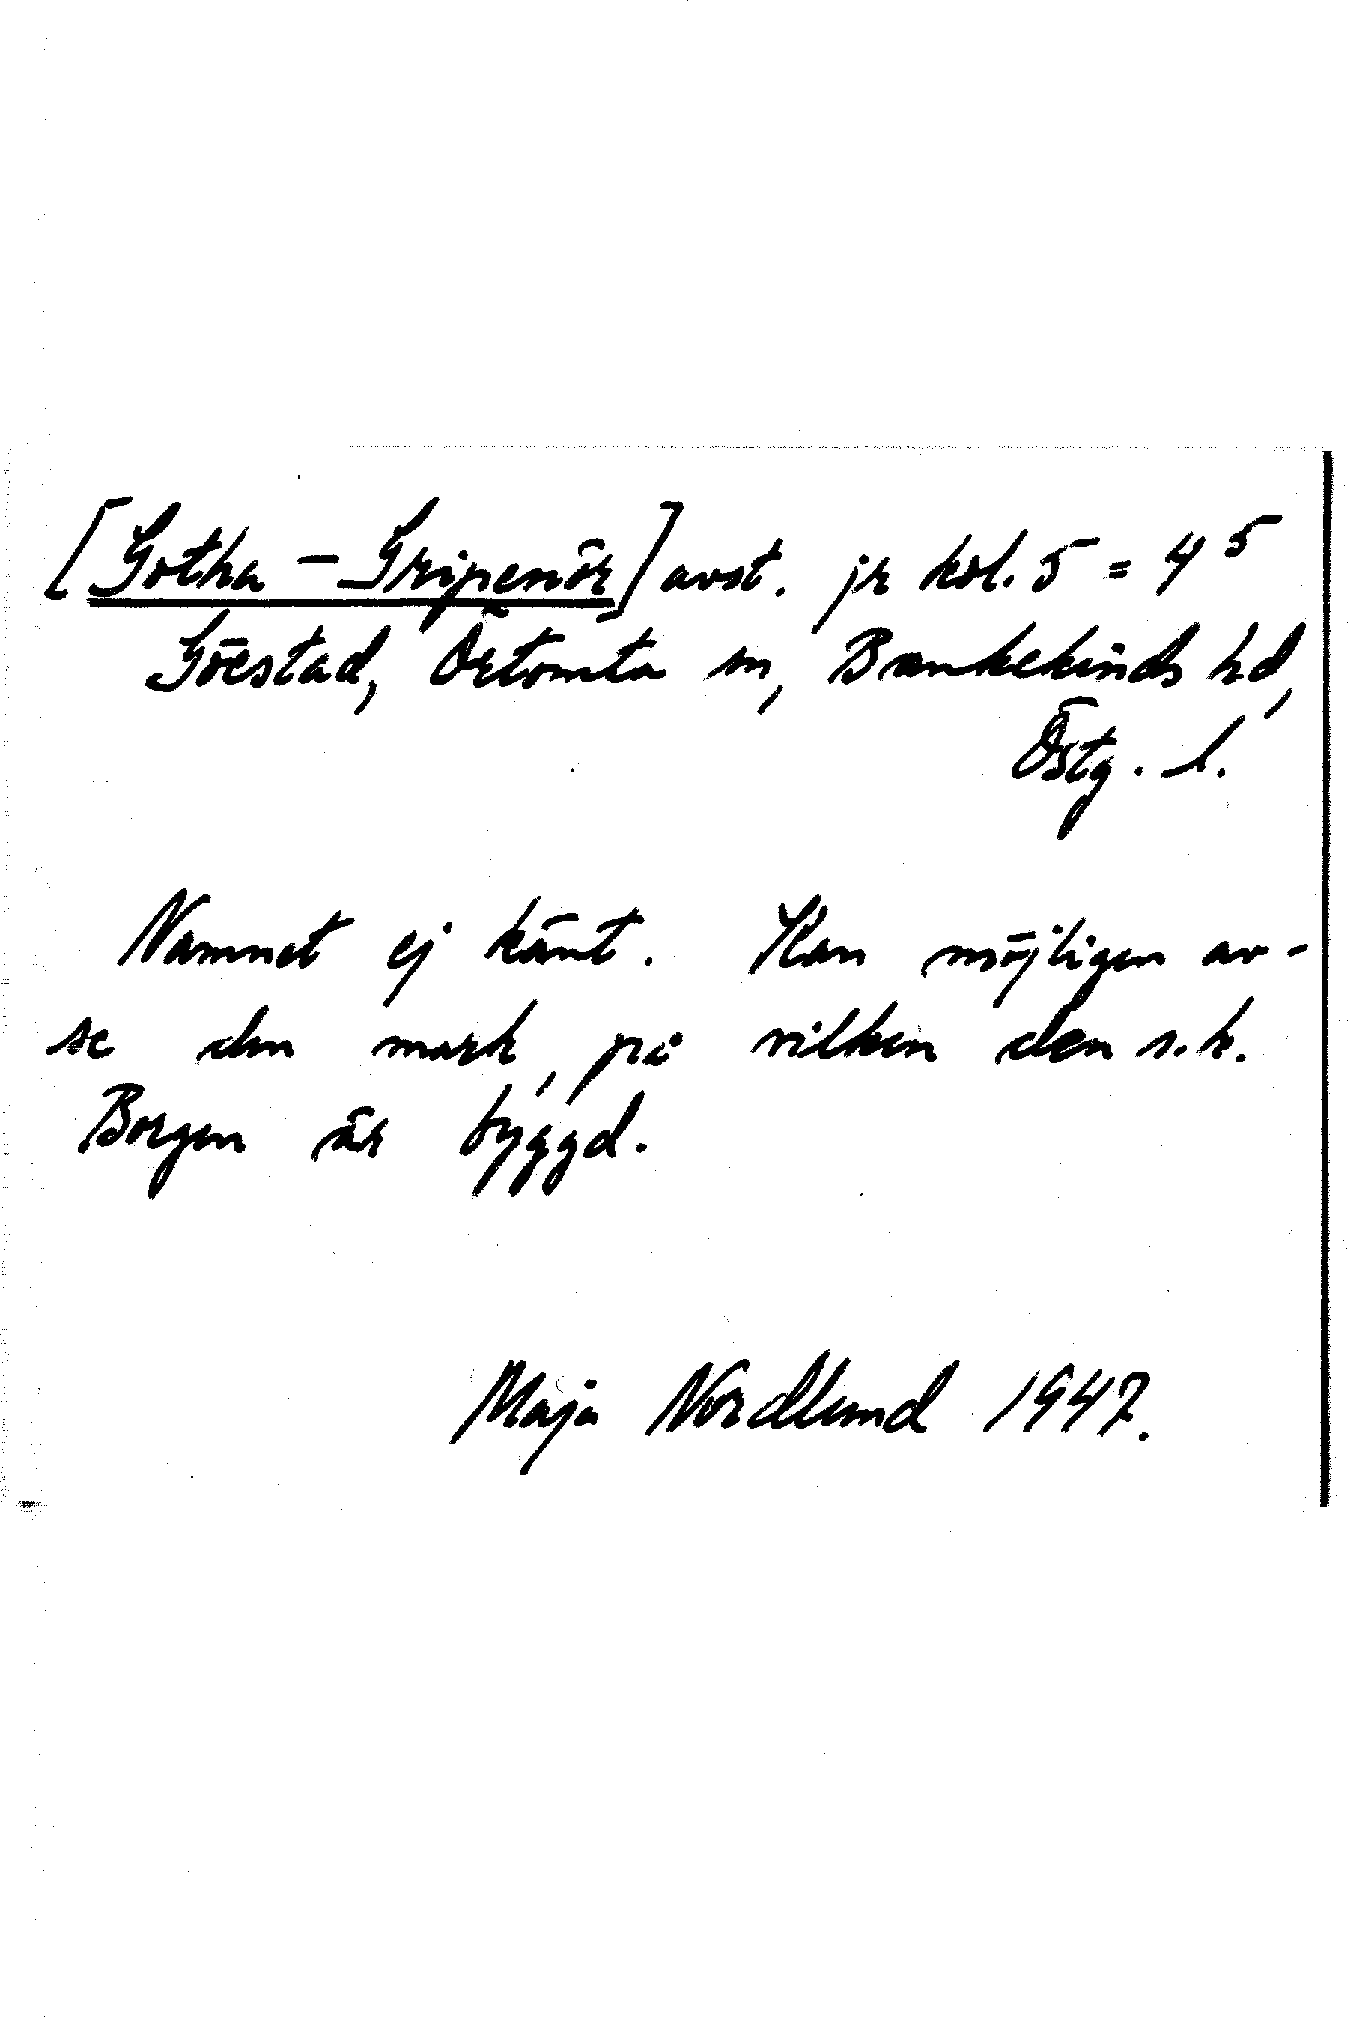 [Gotha – Gripenör] avst. jr kol. 5 = 4 5
Göestad, Örtomta sn, Bankekinds hd,
Östg. l.
Namnet ej känt. Kan möjligen av-
se den mark, på vilken den s.k.
Borgen är byggd.
Maja Nordlund 1947.